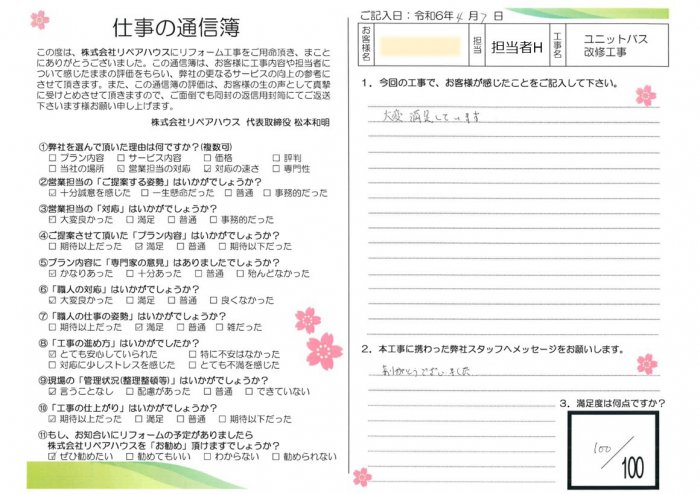 仕事の通信簿
この度は、株式会社リペアハウスにリフォーム工事をご用命頂き、まこと
にありがとうございました。この通信簿は、お客様に工事内容や担当者に
ついて感じたままの評価をもらい、弊社の更なるサービスの向上の参考に
させて頂きます。また、この通信簿の評価は、お客様の生の声として真摯
に受けとめさせて頂きますので、ご面倒でも同封の返信用封筒にてご返送
下さいます様お願い申し上げます。
株式会社リペアハウス 代表取締役 松本和明
①弊社を選んで頂いた理由は何ですか?(複数可)
□プラン内容 □サービス内容 □価格 □評判
□当社の場所 ☑営業担当の対応 ☑対応の速さ □専門性
②営業担当の「ご提案する姿勢」はいかがでしょうか?
☑十分誠意を感じた □一生懸命だった □普通 □事務的だった
③営業担当の「対応」はいかがでしょうか?
☑大変良かった □満足 □普通 □事務的だった
④ご提案させて頂いた「プラン内容」はいかがでしょうか?
□期待以上だった ☑満足 □普通 □期待以下だった
⑤プラン内容に「専門家の意見」はありましたでしょうか?
☑かなりあった □十分あった □普通 □殆んどなかった
⑥「職人の対応」はいかがでしょうか?
☑大変良かった □満足 □普通 □良くなかった
⑦「職人の仕事の姿勢」はいかがでしょうか?
□期待以上だった ☑満足 □普通 □雑だった
⑧「工事の進め方」はいかがでしたか?
☑とても安心していられた □特に不安はなかった
□対応に少しストレスを感じた □とても不満を感じた
⑨現場の「管理状況(整理整頓等)」はいかがでしょうか?
☑言うことなし □配慮があった □普通 □できていない
⑩「工事の仕上がり」はいかがでしょうか?
☑期待以上だった □満足 □普通 □期待以下だった
⑪もし、お知合いにリフォームの予定がありましたら
株式会社リペアハウスを「お勧め」頂けますでしょうか?
☑ぜひ勧めたい □勧めてもいい □わからない □勧められない
ご記入日：令和6年 4月 7日
お客様名
担当
担当者H
工事名
ユニットバス
改修工事
1．今回の工事で、お客様が感じたことをご記入して下さい。
大変 満足しています
2．本工事に携わった弊社スタッフへメッセージをお願いします。
ありがとうございました
3．満足度は何点ですか?
100/100